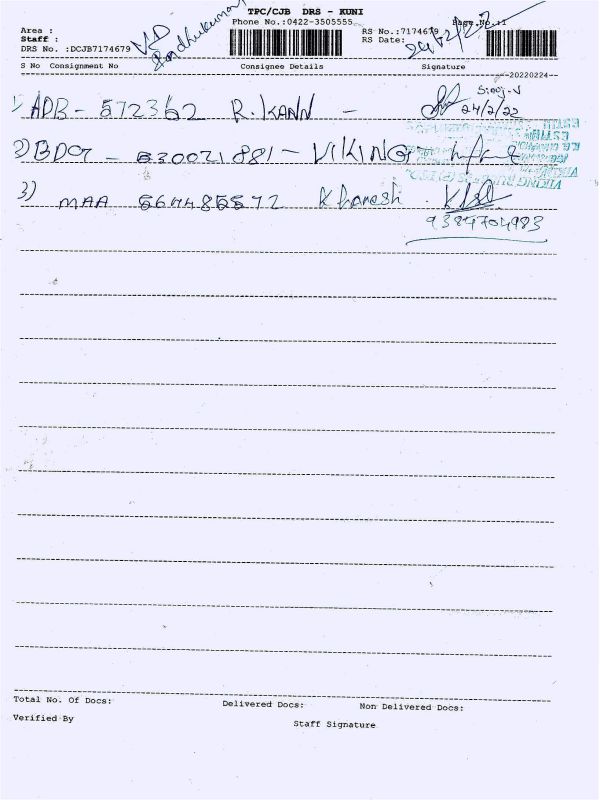 TPC/CJB DRS - KUNI
Phone No.:0422-3505555 Page No.:1
Area :
Staff :
DRS No. :DCJB7174679
RS No.:7174679
RS Date: 24/2/22
--20220224--
S No Consignment No Consignee Details Signature
1) ADB - 572362 R. KANN - 24/2/22
2) BDO - 630021881 - VIKING
3) MAA 564486572 Kharesh
9384704983
Total No. Of Docs: Delivered Docs: Non Delivered Docs:
Verified By Staff Signature